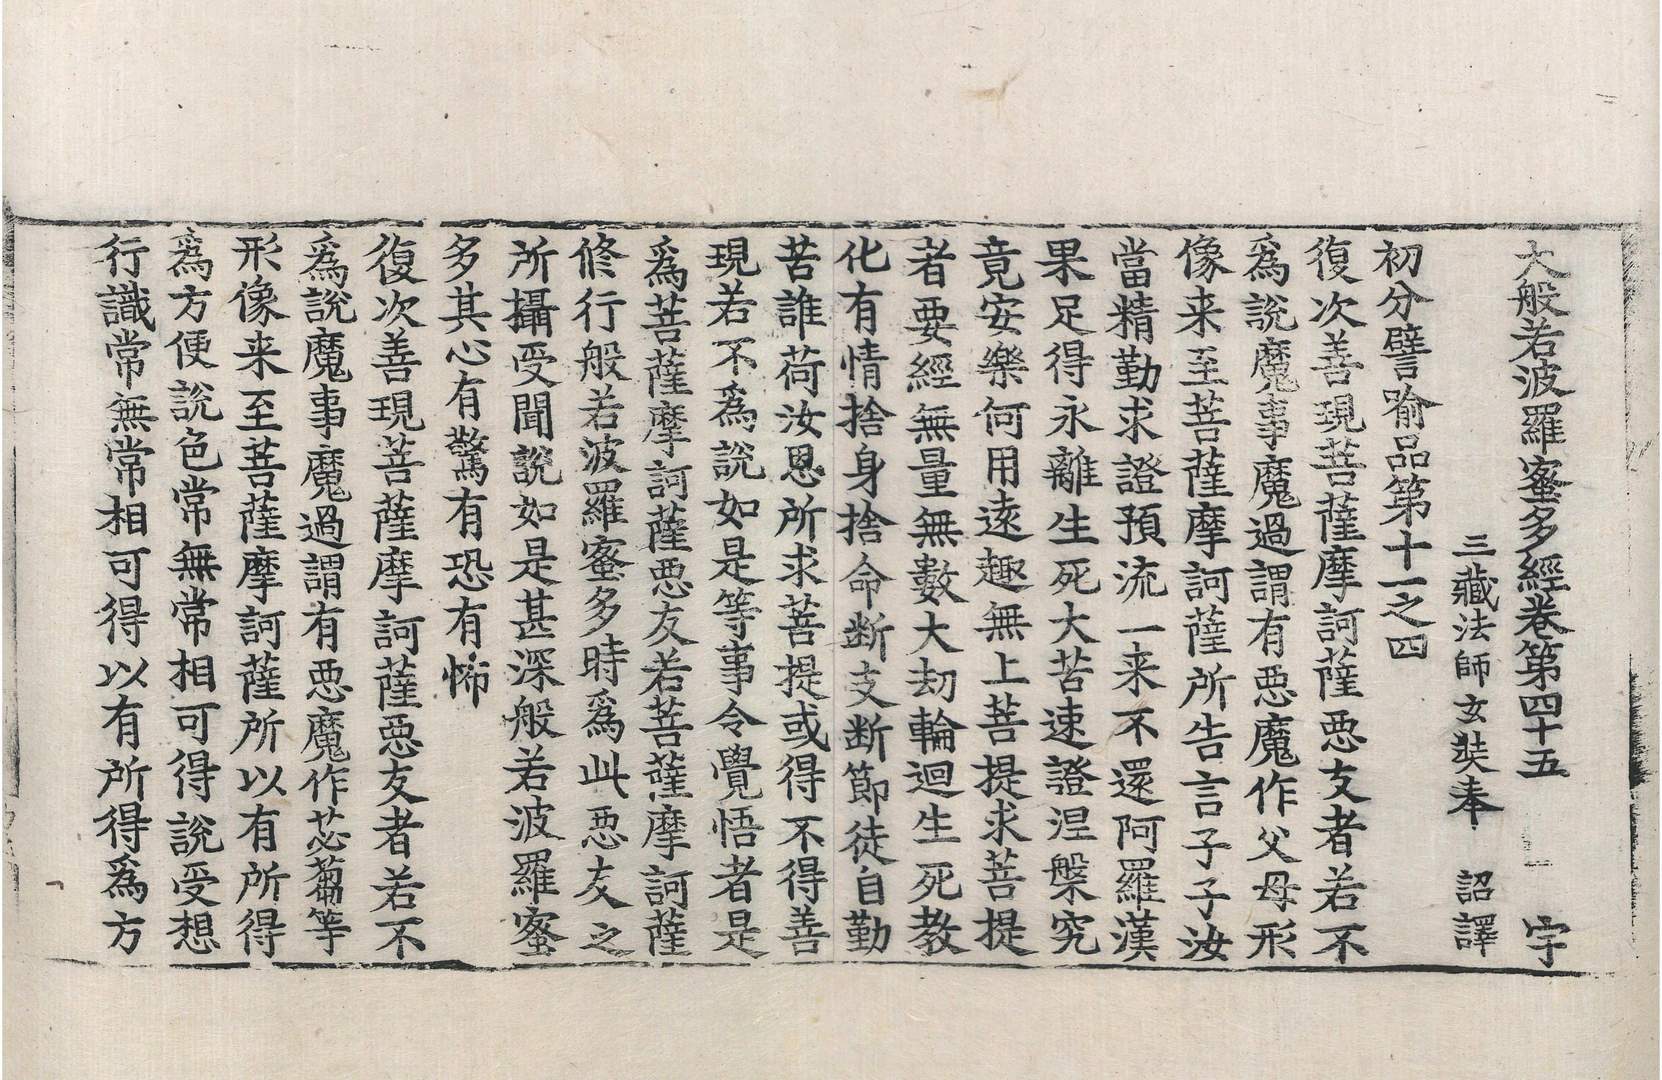 大般若波羅蜜多經卷第四十五 一 宇
三藏法師玄奘奉 詔譯
初分譬喻品第十一之四
復次善現菩薩摩訶薩悪友者若不
爲說魔事魔過謂有悪魔作父母形
像来至菩薩摩訶薩所告言子子汝
當精勤求證預流一来不還阿羅漢
果足得永離生死大苦速證涅槃究
竟安樂何用遠趣無上菩提求菩提
者要經無量無數大劫輪迴生死教
化有情捨身捨命斷支斷節徒自勤
苦誰荷汝恩所求菩提或得不得善
現若不爲說如是等事令覺悟者是
爲菩薩摩訶薩悪友若菩薩摩訶薩
修行般若波羅蜜多時爲此悪友之
所攝受聞說如是甚深般若波羅蜜
多其心有驚有恐有怖
復次善現菩薩摩訶薩悪友者若不
爲說魔事魔過謂有悪魔作苾蒭等
形像来至菩薩摩訶薩所以有所得
爲方便說色常無常相可得說受想
行識常無常相可得以有所得爲方